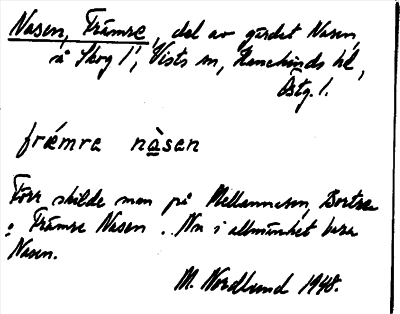 Nasen, Främre, del av gärdet Nasen,
å Skog 1, Vists sn, Hanekinds hd,
Östg. l.
fræmre nàsen
Förr skilde man på Mellannasen, Bortre
o Främre Nasen. Nu i allmänhet bara
Nasen.
M. Nordlund 1948.